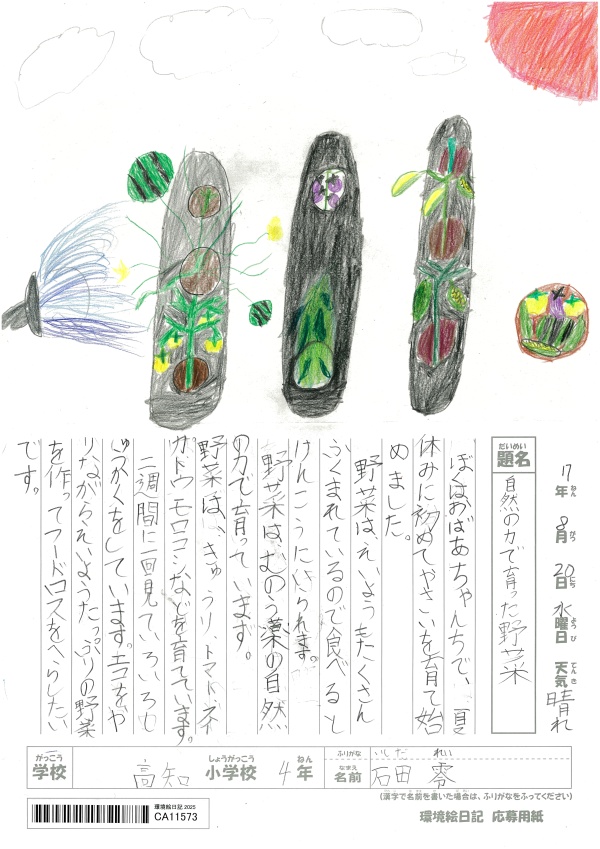 7年 8月 20日 水曜日 天気 晴れ
ねん がつ にち ようび てんき
だいめい
題名
自然の力で育った野菜
ぼくはおばあちゃんちで、夏
休みに初めてやさいを育て始
めました。
野菜は、えいようもたくさん
ふくまれているので食べると
けんこうになられます。
野菜は、むのう薬の自然
の力で育っています。
野菜は、きゅうり、トマト、スイ
カ、トウモロコシなどを育ています。
二週間に一回見ていろいろ
しゅうかくをしています。エコをや
りながらえいようたっぷりの野菜
を作ってフードロスをへらしたい
です。
がっこう しょうがっこう ねん
学校 高知 小学校 4年
ふりがな いしだ れい
なまえ
名前 石田 零
(漢字で名前を書いた場合は、ふりがなをふってください)
環境絵日記 2025
CA11573
環境絵日記 応募用紙